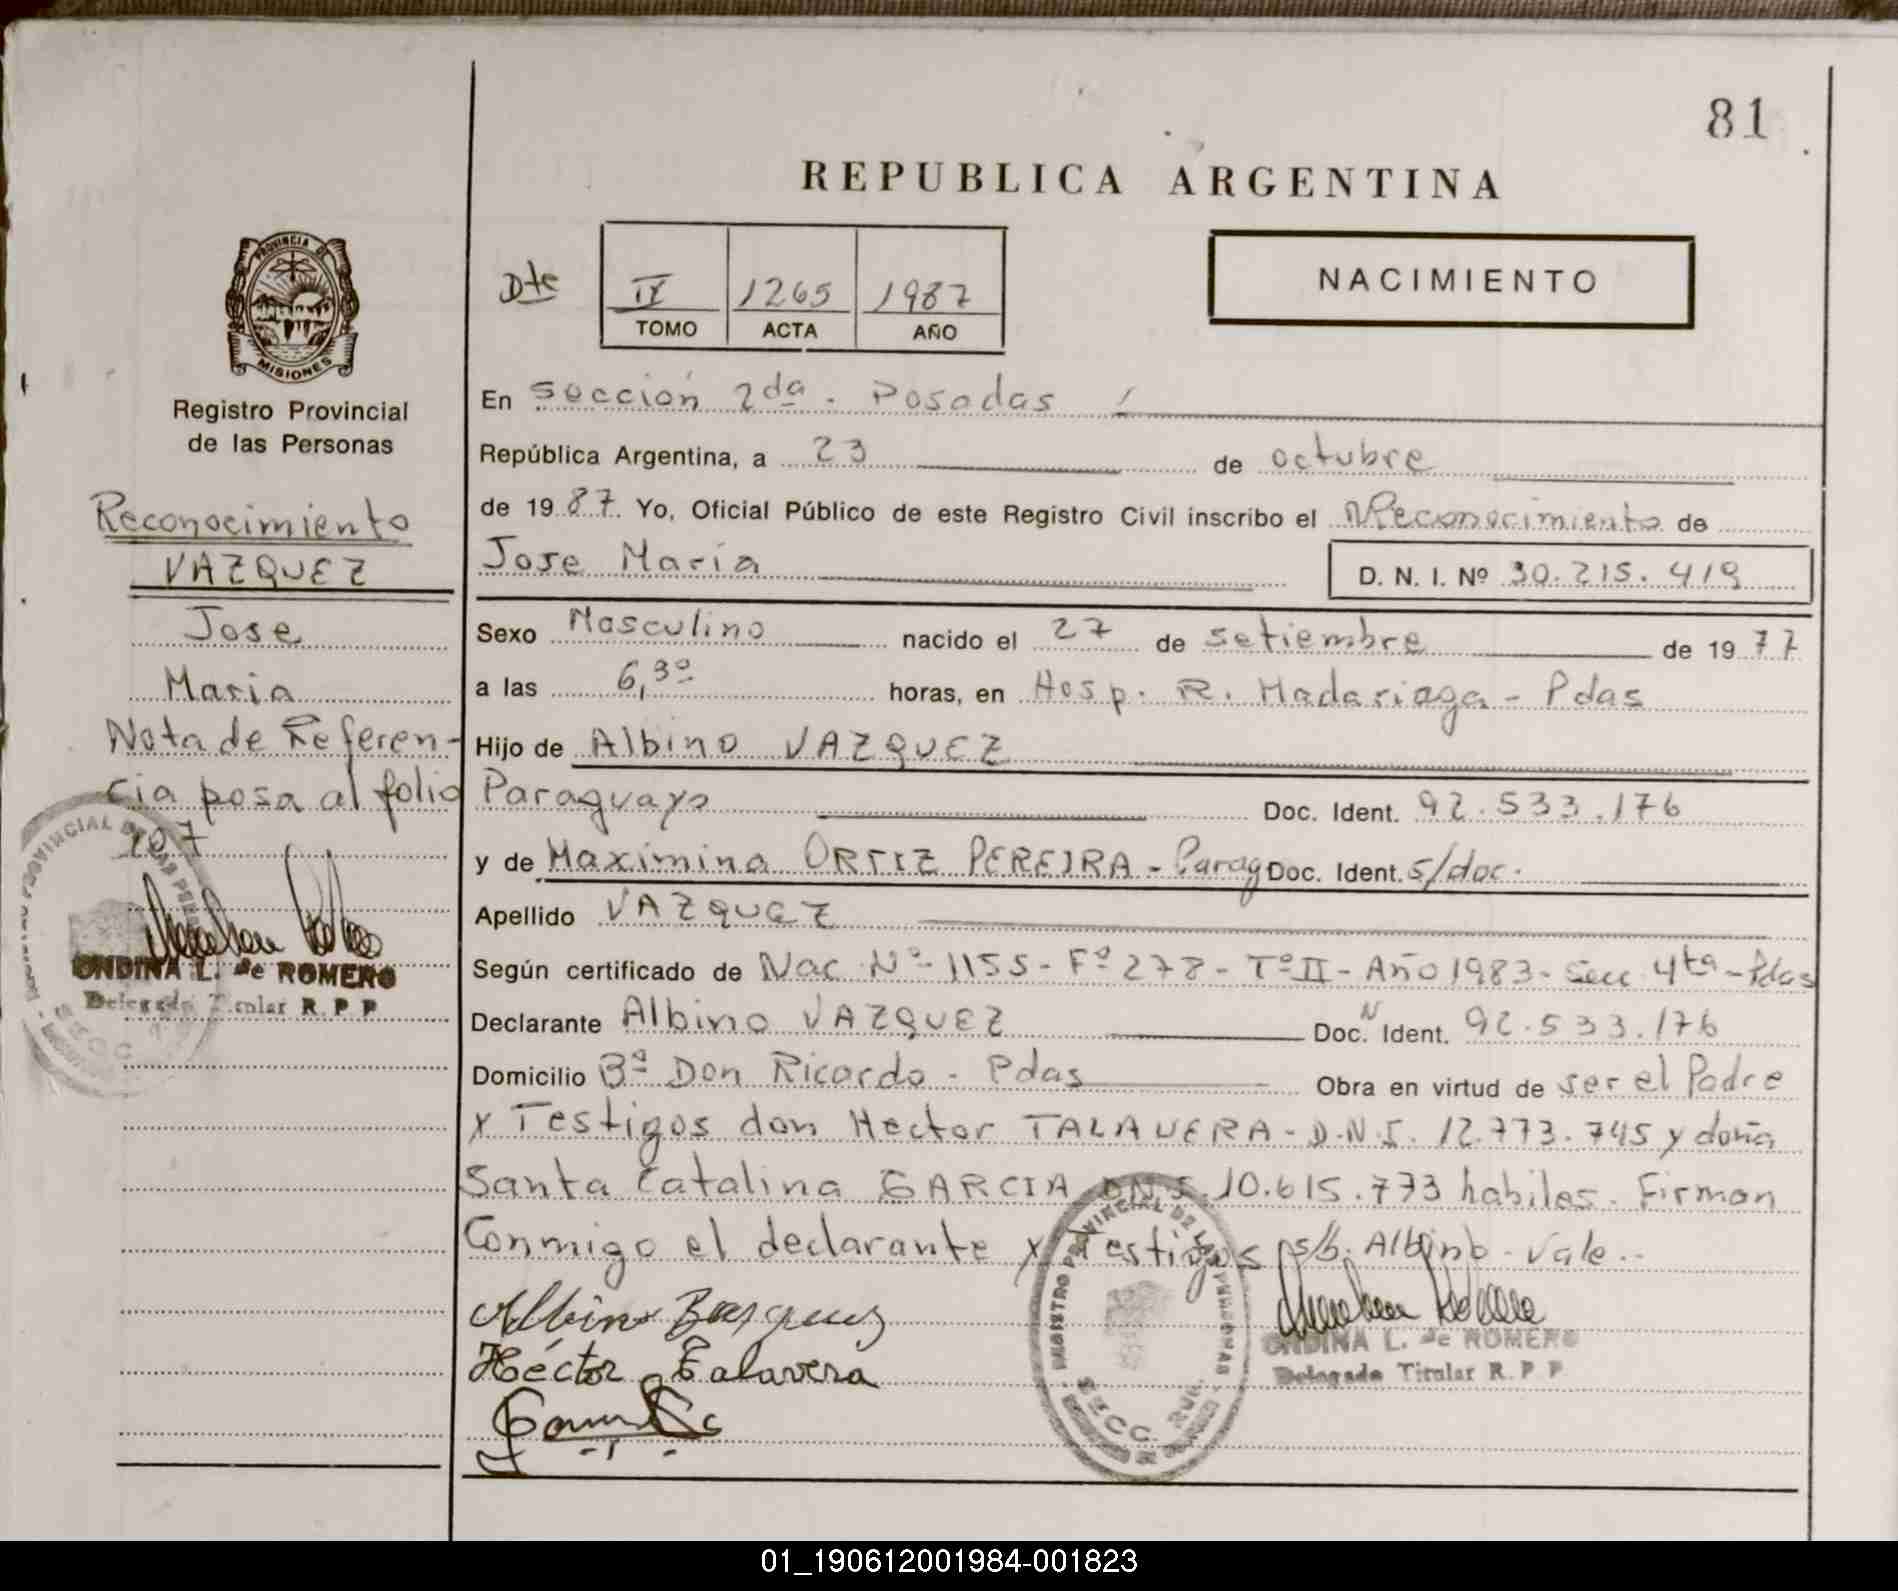 81
REPUBLICA ARGENTINA
PROVINCIA DE
MISIONES
Registro Provincial
de las Personas
Dto
IV 1265 1987
TOMO ACTA AÑO
NACIMIENTO
En Sección 2da. Posadas
República Argentina, a 23 de octubre
de 1987. Yo, Oficial Público de este Registro Civil inscribo el Reconocimiento de
Jose Maria D. N. I. Nº 30.215.419
Sexo Masculino nacido el 27 de setiembre de 1977
a las 6,30 horas, en Hosp. R. Madariaga - Pdas
Hijo de Albino VAZQUEZ
Paraguayo Doc. Ident. 92.533.176
y de Maximina ORTIZ PEREIRA - Parag Doc. Ident. s/doc.
Apellido VAZQUEZ
Según certificado de Nac Nº 1155 - Fº 278 - Tº II - Año 1983 - Secc 4ta - Pdas
Declarante Albino VAZQUEZ Doc. Ident. 92.533.176
Domicilio Bº Don Ricardo - Pdas Obra en virtud de ser el Padre
y Testigos don Hector TALAVERA - D.N.I. 12.773.745 y doña
Santa Catalina GARCIA DNI. 10.615.773 habiles. Firman
Conmigo el declarante y Testigos s/b. Albino - Vale.-
Albino Basques
Héctor Talavera
ONDINA L. de ROMERO
Delegado Titular R. P P
REGISTRO PROVINCIAL DE LAS PERSONAS
SECC.
Reconocimiento
VAZQUEZ
Jose
Maria
Nota de Referen-
cia pasa al folio
107
ONDINA L. de ROMERO
Delegado Titular R. P P
01_190612001984-001823